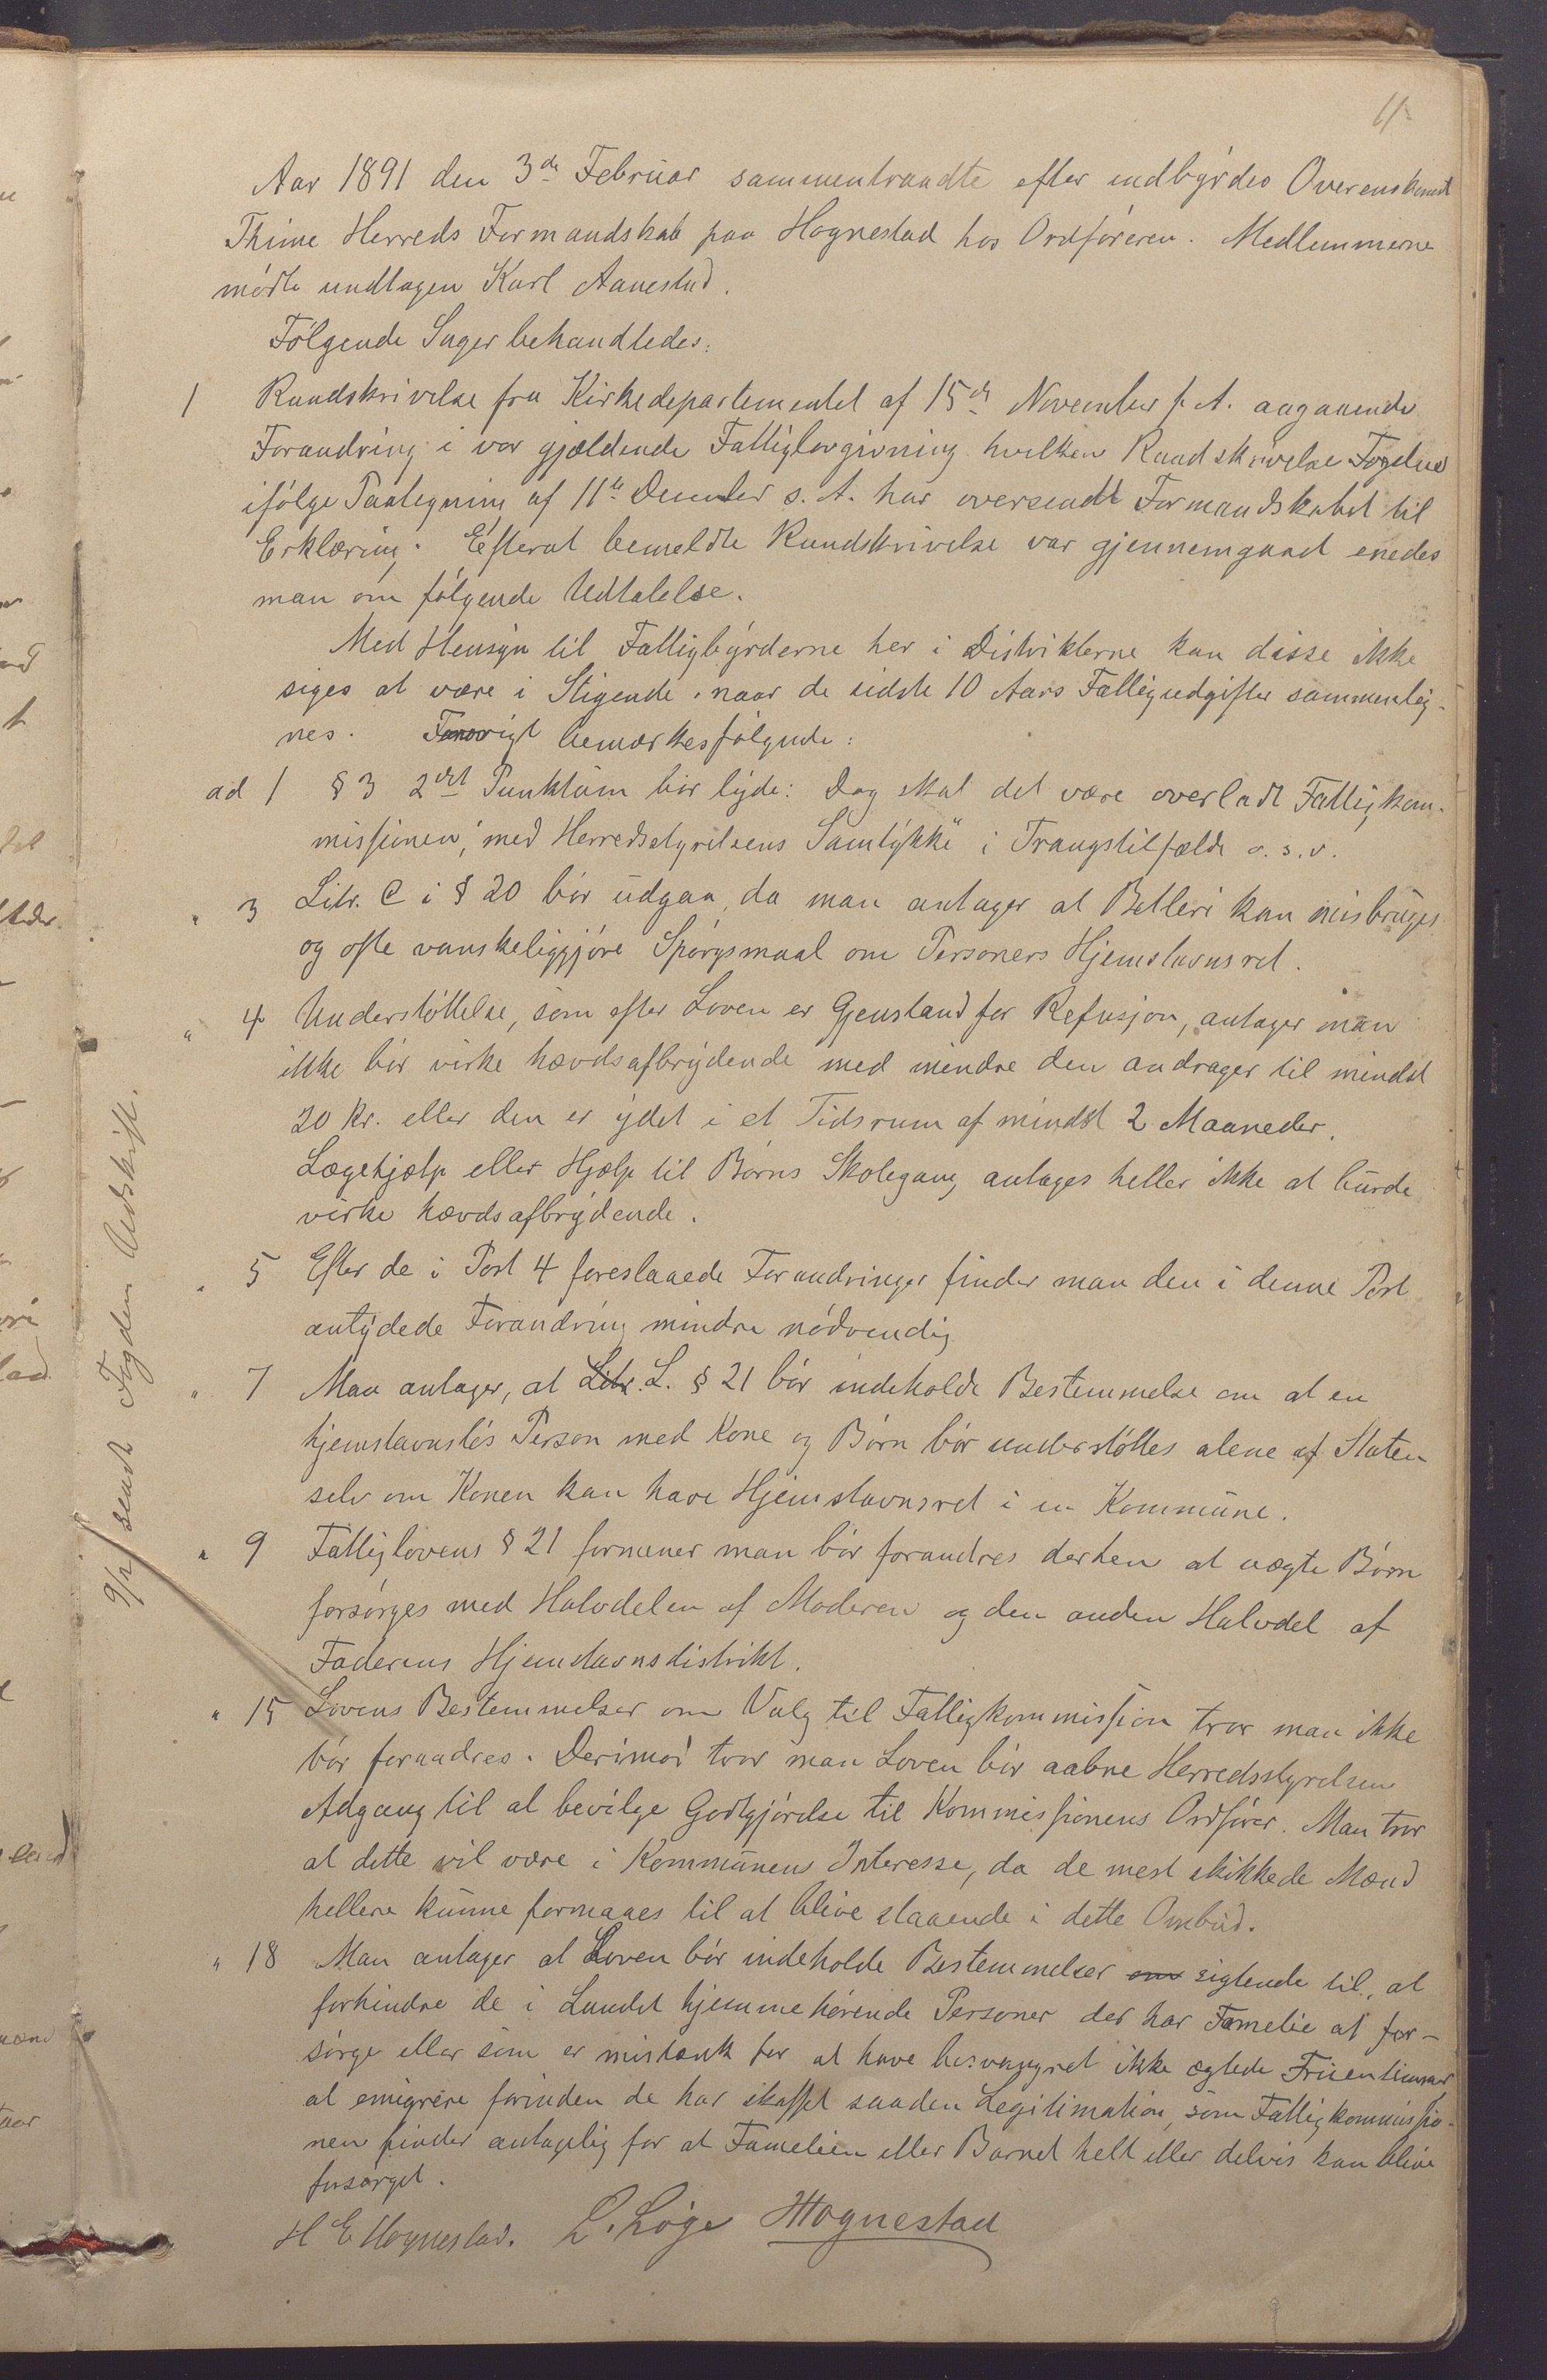 Aar 1891 den 3de Februar sammentraadte efter indbyrdes Overenskomst
Thime Herreds Formandskab paa Hognestad hos Ordføreren. Medlemmerne
mødte undtagen Karl Aanestad.
Følgende Sager behandledes:
1 Rundskrivelse fra Kirkedepartementet af 15de November f. A. angaaende
Forandring i vor gjældende Fattiglovgivning hvilken Rundskrivelse Fogden
ifølge Paategning af 11te December s. A. har oversendt Formandskabet til
Erklæring. Efterat bemeldte Rundskrivelse var gjennemgaaet enedes
man om følgende Udtalelse.
Med Hensyn til Fattigbyrderne her i Distrikterne kan disse ikke
siges at være i Stigende naar de sidste 10 Aars Fattigudgifter sammenlig-
nes. Forøvrigt bemærkes følgende:
ad 1 § 3 2det Punktum bør lyde: Dog skal det være overladt Fattigkom-
missionen, "med Herredsstyrelsens Samtykke" i Trangstilfælde o. s. v.
" 3 Litr. C i § 20 bør udgaa, da man antager at Betleri kan misbruges
og ofte vanskeliggjøre Spørgsmaal om Personers Hjemstavnsret.
" 4 Understøttelse, som efter Loven er Gjenstand for Refusjon, antager man
ikke bør virke hævdsafbrydende med mindre den andrager til mindst
20 Kr. eller den er ydet i et Tidsrum af mindst 2 Maaneder.
Lægehjælp eller Hjælp til Børns Skolegang antages heller ikke at burde
virke hævdsafbrydende.
" 5 Efter de i Post 4 foreslaaede Forandringer finder man den i denne Post
antydede Forandring mindre nødvendig
" 7 Man antager, at Litr. L. § 21 bør indeholde Bestemmelse om at en
hjemstavnsløs Person med Kone og Børn bør understøttes alene af Staten
selv om Konen kan have Hjemstavnsret i en Kommune.
" 9 Fattiglovens § 21 formener man bør forandres derhen at uægte Børn
forsørges med Halvdelen af Moderen og den anden Halvdel af
Faderens Hjemstavnsdistrikt.
" 15 Lovens Bestemmelser om Valg til Fattigkommission tror man ikke
bør forandres. Derimod tror man Loven bør aabne Herredsstyrelsen
Adgang til at bevilge Godtgjørelse til Kommissionens Ordfører. Man tror
at dette vil være i Kommunens Interesse, da de mest skikkede Mænd
hellere kunne formaaes til at blive staaende i dette Ombud.
" 18 Man antager at Loven bør indeholde Bestemmelser om sigtende til, at
forhindre de i Landet hjemmehørende Personer der har Famelie at for-
sørge eller som er mistænkt for at have besvangret ikke ægtede Fruentimmer
at emigrere forinden de har skaffet saaden Legitimation, som Fattigkommissio-
nen finder antagelig for at Famelien eller Barnet helt eller delvis kan blive
forsørget.
H E Hognestad. L. Løge HHognestad
9/2 sendt Fogden Udskrift.